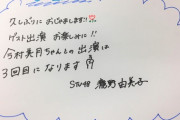 久しぶりに おじゃまします!!
ゲスト出演 お楽しみに!!
今村美月ちゃんとの 出演は
3回目になります
STU48 瀧野由美子